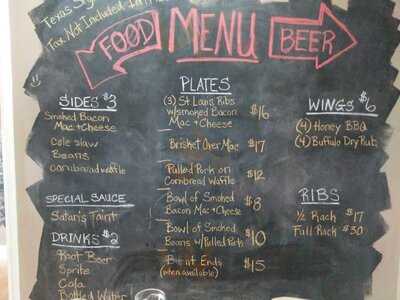 Texas
Tax Not Included In
FOOD
MENU
BEER
SIDES $3
Smoked Bacon
Mac + Cheese
Cole slaw
Beans
Cornbread waffle
SPECIAL SAUCE
Satan's Taint
DRINKS $2
Root Beer
Sprite
Cola
Bottled Water
PLATES
(3) St Louis Ribs
w/smoked Bacon $16
Mac + Cheese
Brisket Over Mac $17
Pulled Pork on
Cornbread Waffle $12
Bowl of Smoked
Bacon Mac + Cheese $8
Bowl of Smoked
Beans w/Pulled Pork $10
Burnt Ends $15
(when available)
WINGS $6
(4) Honey BBQ
(4) Buffalo Dry Rub
RIBS
1/2 Rack $17
Full Rack $30